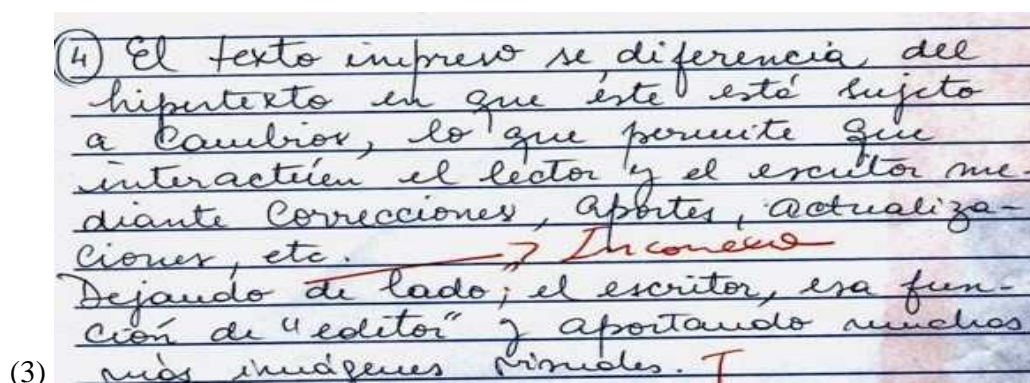 4 El texto impreso se diferencia del
hipertexto en que éste está sujeto
a cambios, lo que permite que
interactúen el lector y el escritor me-
diante correcciones, aportes, actualiza-
ciones, etc. Inconexo
Dejando de lado; el escritor, esa fun-
ción de "editor" y aportando muchas
(3) más imágenes visuales.